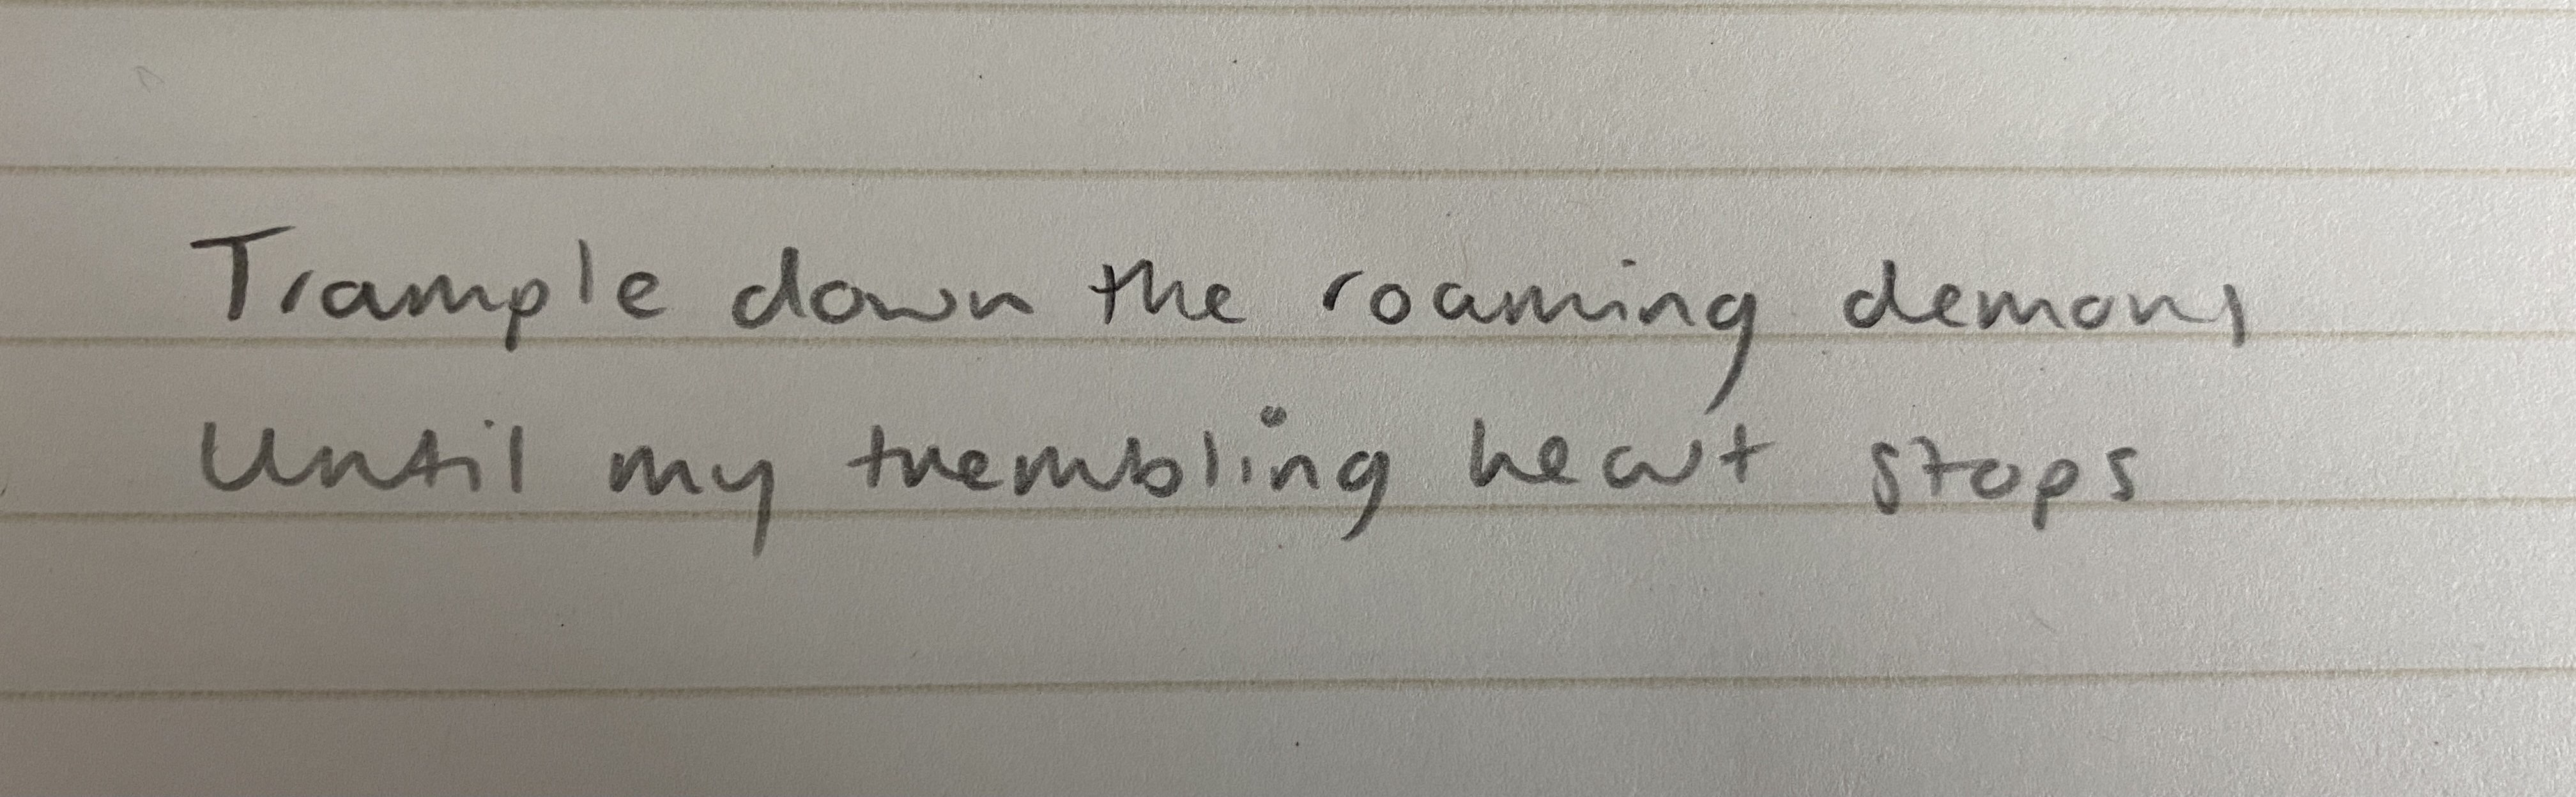 Trample down the roaming demons
Until my trembling heart stops